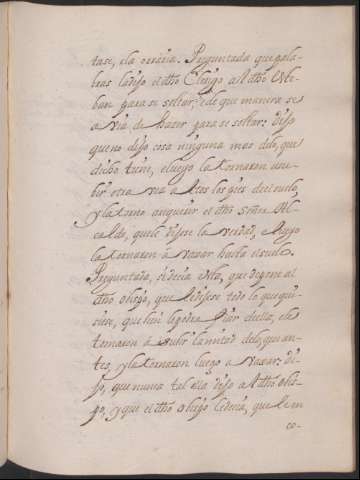 tase, ela oraçia. Preguntada que pala-
bras la dijo el dho Clerigo a el dho Este-
ban para se soltar; e de que manera se
avia de hacer para se soltar: Dijo
que no dijo cosa ninguna mas delo, que
dicho tiene, e luego la tornaron a su-
bir otra vez a altos los pies de el suelo,
y la torno a requerir el dho Señor Al-
calde, que le dijese la verdad, e luego
la tornaron à vaxar hasta el suelo.
Preguntada, si decia ella, que dexene al
dho obispo, que le diese todo lo que qui-
siere, que bien le podia fiar della, e la
tornaron à subir la mitad delo, que an-
tes, y la tornaron luego a vaxar: Di-
jo, que nunca tal ela dijo a el dho obis-
po, y que el dho obispo le decia, que le en
co-